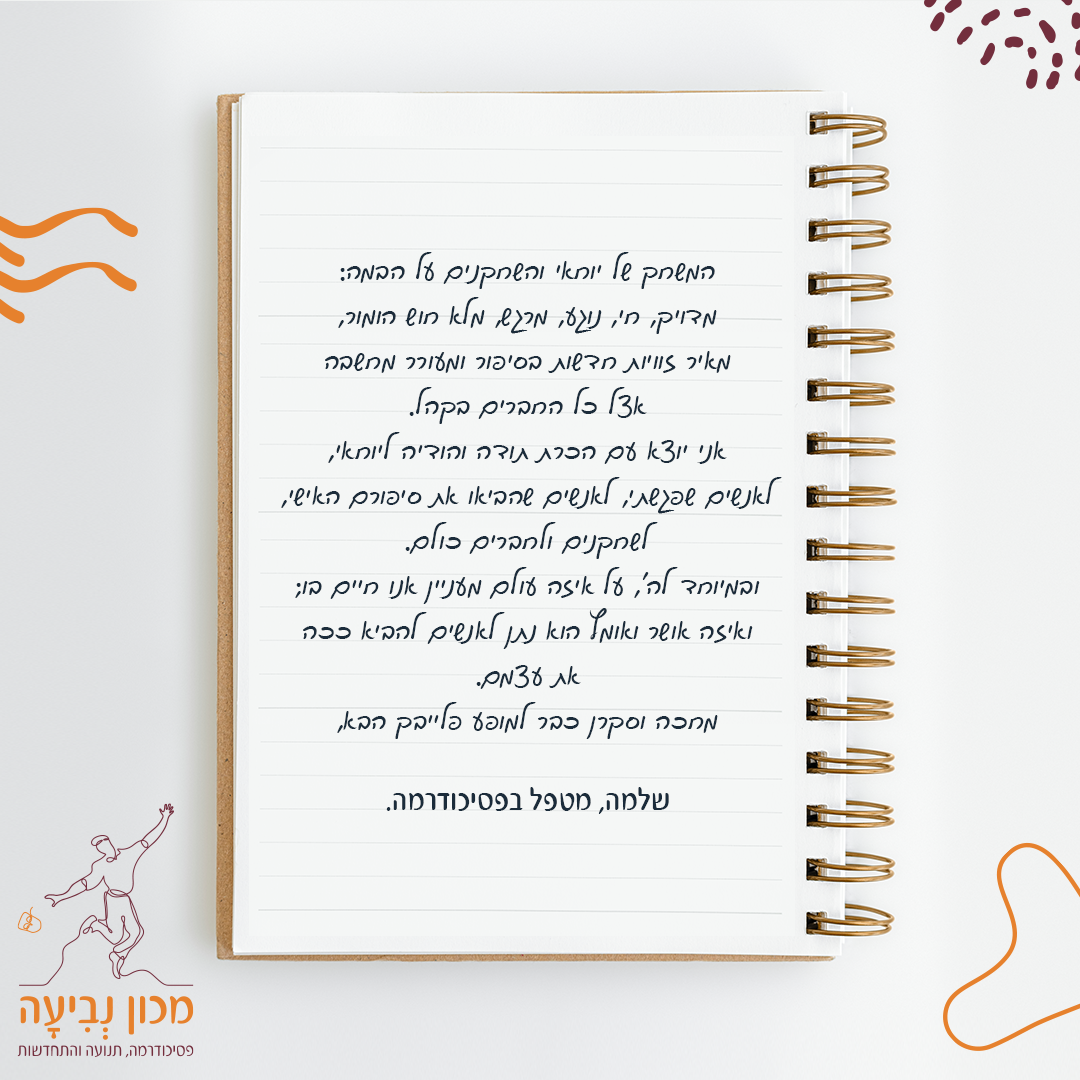 המשחק של יוחאי והשחקנים על הבמה:
מדויק, חי, נוגע, מרגש, מלא חוש הומור,
מאיר זוויות חדשות בסיפור ומעורר מחשבה
אצל כל החברים בקהל.
אני יוצא עם הכרת תודה והודיה ליוחאי,
לאנשים שפגשתי, לאנשים שהביאו את סיפורם האישי,
לשחקנים ולחברים כולם.
ובמיוחד לה', על איזה עולם מעניין אנו חיים בו;
ואיזה אושר ואומץ הוא נתן לאנשים להביא ככה
את עצמם.
מחכה וסקרן כבר למופע פלייבק הבא,
שלמה, מטפל בפסיכודרמה.
מכון נְבִיעָה
פסיכודרמה, תנועה והתחדשות